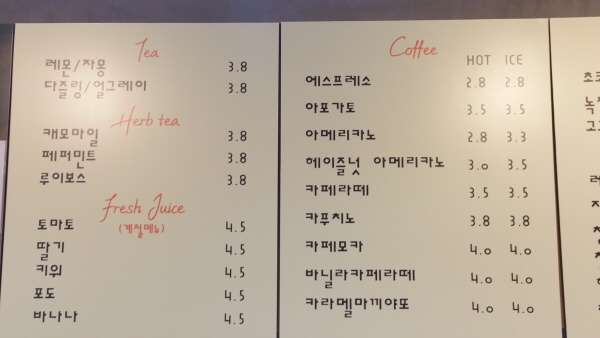 Tea
레몬/자몽 3.8
다즐링/얼그레이 3.8
Herb tea
캐모마일 3.8
페퍼민트 3.8
루이보스 3.8
Fresh Juice
(계절메뉴)
토마토 4.5
딸기 4.5
키위 4.5
포도 4.5
바나나 4.5
Coffee
HOT ICE
에스프레소 2.8 2.8
아포가토 3.5 3.5
아메리카노 2.8 3.3
헤이즐넛 아메리카노 3.0 3.5
카페라떼 3.5 3.5
카푸치노 3.8 3.8
카페모카 4.0 4.0
바닐라카페라떼 4.0 4.0
카라멜마끼야또 4.0 4.0